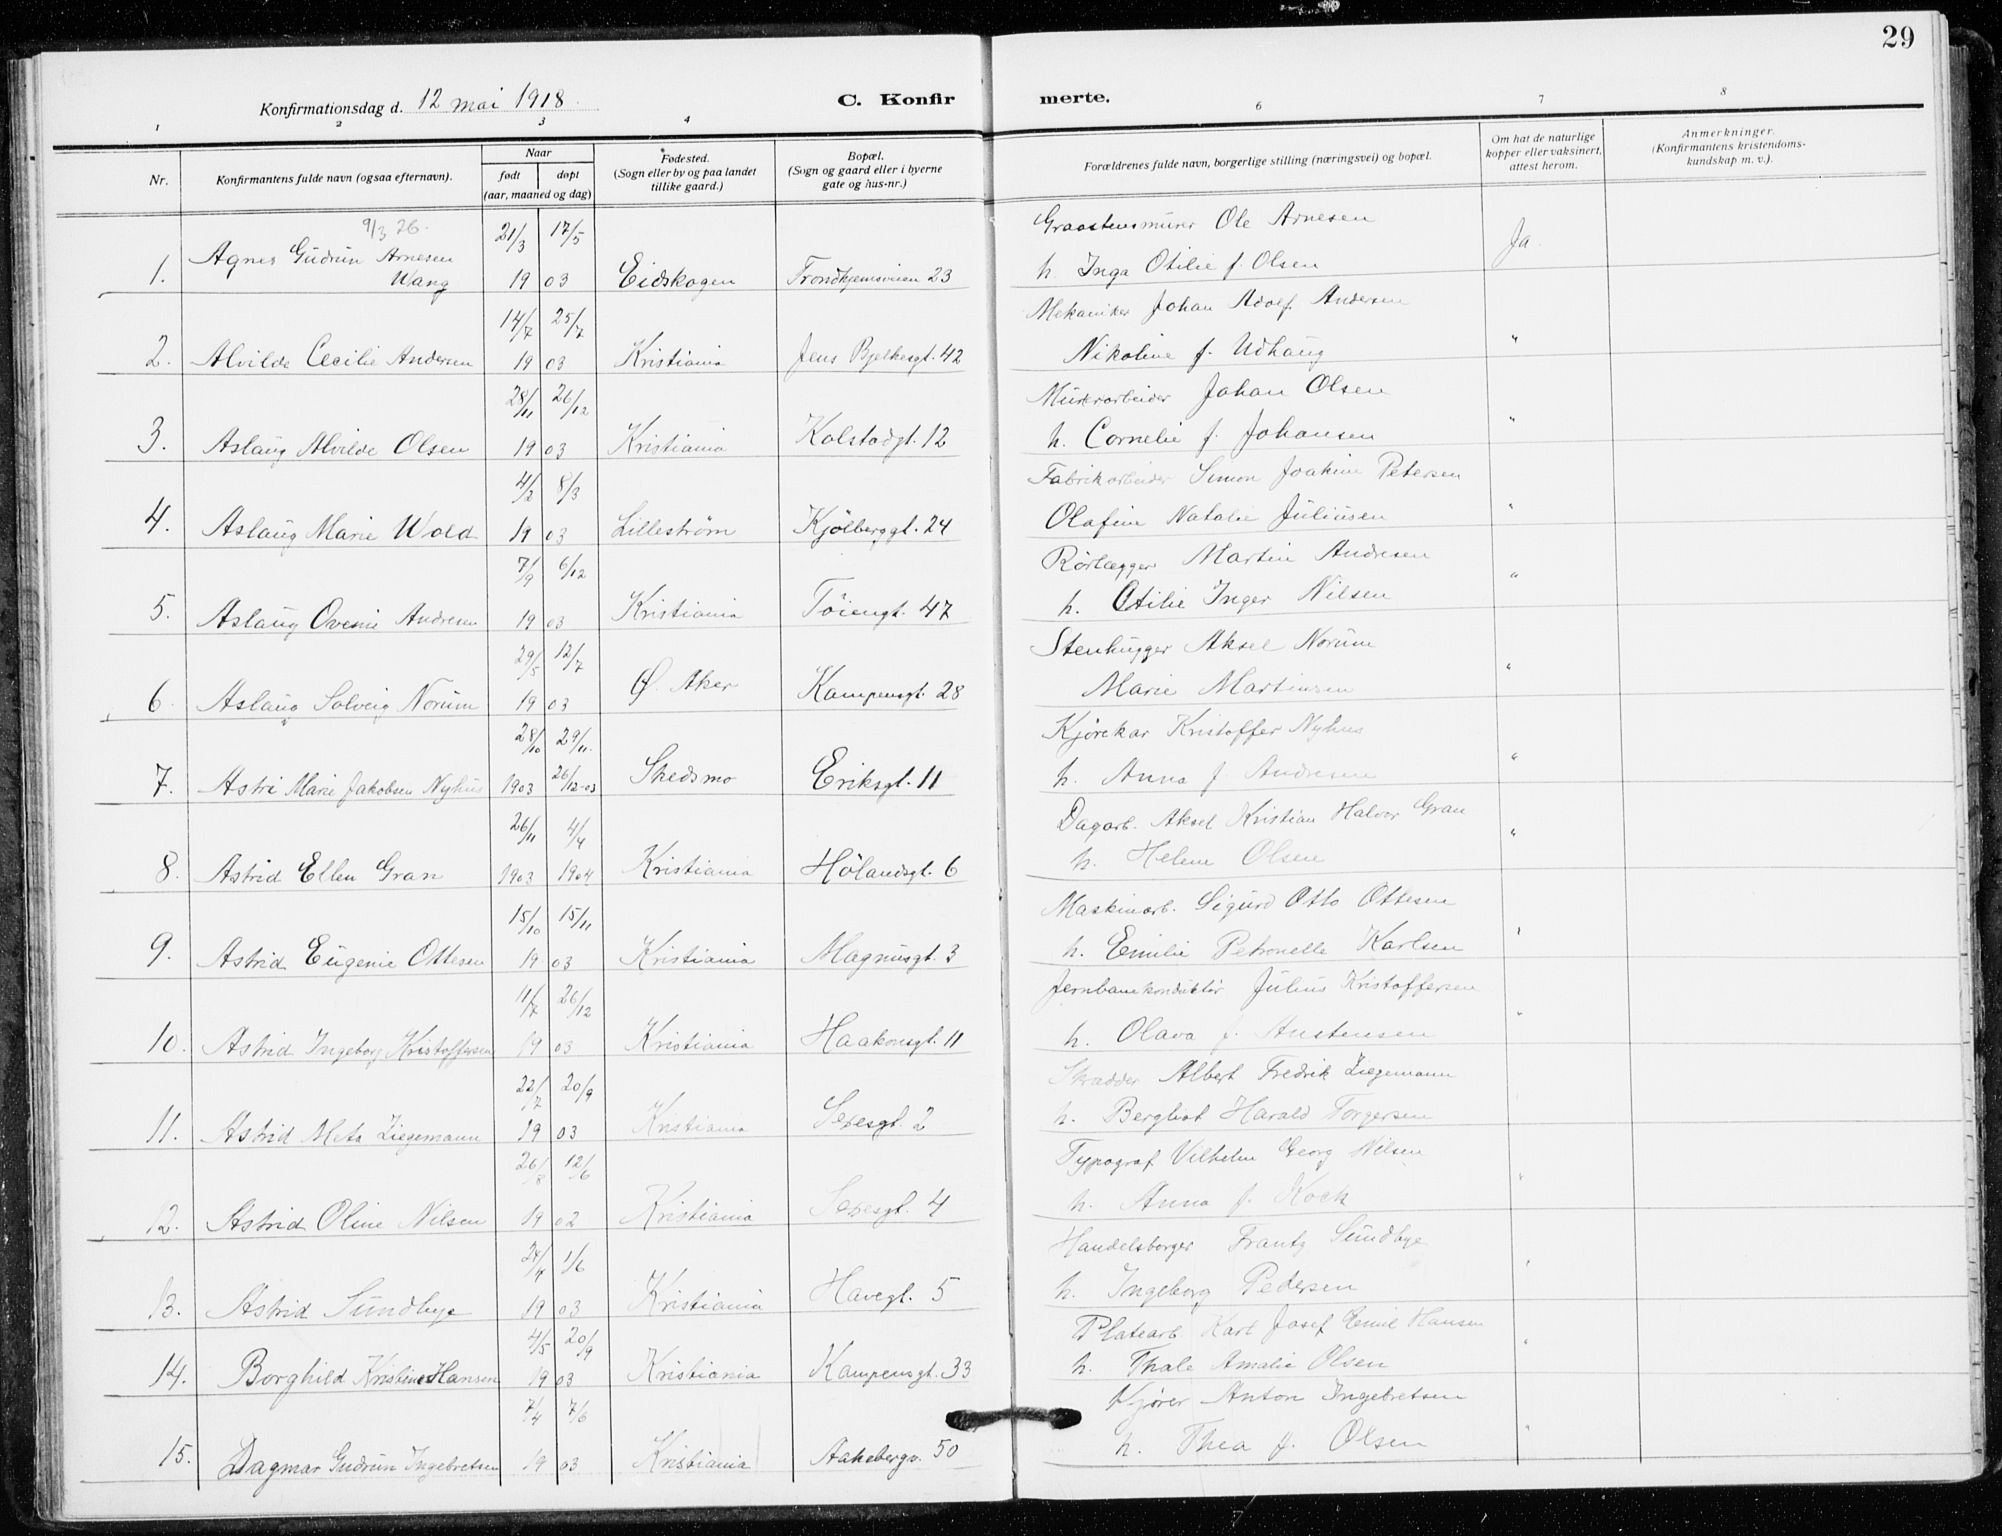 29
Konfirmationsdag d. 12 mai 1918.
C. Konfirmerte.
1 2 3 4 6 7 8
Nr.
Konfirmantens fulde navn (ogsaa efternavn).
Naar
født døpt
(aar, maaned og dag)
Fødested.
(Sogn eller by og paa landet
tillike gaard.)
Bopæl.
(Sogn og gaard eller i byerne
gate og hus-nr.)
Forældrenes fulde navn, borgerlige stilling (næringsvei) og bopæl.
Om hat de naturlige
kopper eller vaksinert,
attest herom.
Anmerkninger.
(Konfirmantens kristendoms-
kundskap m. v.).
9/3 26. 21/3 17/5 Graastensmurer Ole Arnesen
1. Agnes Gudrun Arnesen Ja.
Wang 19 03 Eidskogen Trondhjemsveien 23 h. Inga Otilie f. Olsen
14/7 25/7 Mekaniker Johan Adolf Andersen
2. Alvilde Cecilie Andersen 19 03 Kristiania Jens Bjelkesgt. 42 Nikoline f. Udhaug "
28/11 26/12 Murerarbeider Johan Olsen
3. Aslaug Alvilde Olsen 19 03 Kristiania Kolstadgt. 12 h. Cornelie f. Johansen "
4/2 8/3 Fabrikarbeider Simon Joakim Petersen
4. Aslaug Marie Wold 19 03 Lillestrøm Kjølberggt. 24 Olafine Natalie Juliusen "
7/9 6/12 Rørlægger Martin Andresen
5. Aslaug Ovenie Andresen 19 03 Kristiania Tøiengt. 47 h. Otilie Inger Nilsen "
29/5 12/7 Stenhugger Aksel Norum
6. Aslaug Solveig Norum 19 03 Ø. Aker Kampensgt. 28 Marie Martinsen "
28/10 29/11. Kjørekar Kristoffer Nyhus
7. Astri Marie Jakobsen Nyhus 1903 26/12-03 Skedsmo Eriksgt. 11 h. Anna f. Andresen "
26/11 4/4 Dagarb. Aksel Kristian Halvor Gran
8. Astrid Ellen Gran 1903 1904 Kristiania Hølandsgt. 6 h. Helene Olsen "
15/10 15/11 Maskinarb. Sigurd Otto Ottesen
9. Astrid Eugenie Ottesen 19 03 Kristiania Magnusgt. 3 h. Emilie Petronelle Karlsen "
11/7 26/12 Jernbanekonduktør Julius Kristoffersen
10. Astrid Ingeborg Kristoffersen 19 03 Kristiania Haakonsgt. 11 h. Olava f. Austensen "
22/7 20/9 Skradder Albert Fredrik Ziegemann
11. Astrid Meta Ziegemann 19 03 Kristiania Sexesgt. 2 h. Bergliot Harald Torgersen
26/8 12/6 Typograf Vilhelm Georg Nilsen
12. Astrid Oline Nilsen 19 02 Kristiania Sexesgt. 4 h. Anna f. Kock "
24/4 1/6 Handelsborger Frantz Sundbye
13. Astrid Sundbye 19 03 Kristiania Havegt. 5 h. Ingeborg Pedersen "
4/5 20/9 Platearb. Karl Josef Emil Hansen
14. Borghild Kristine Hansen 19 03 Kristiania Kampensgt. 33 h. Thale Amalie Olsen "
7/4 7/6 Kjører Anton Ingebretsen
15. Dagmar Gudrun Ingebretsen 19 03 Kristiania Aakebergv. 50 h. Thea f. Olsen "